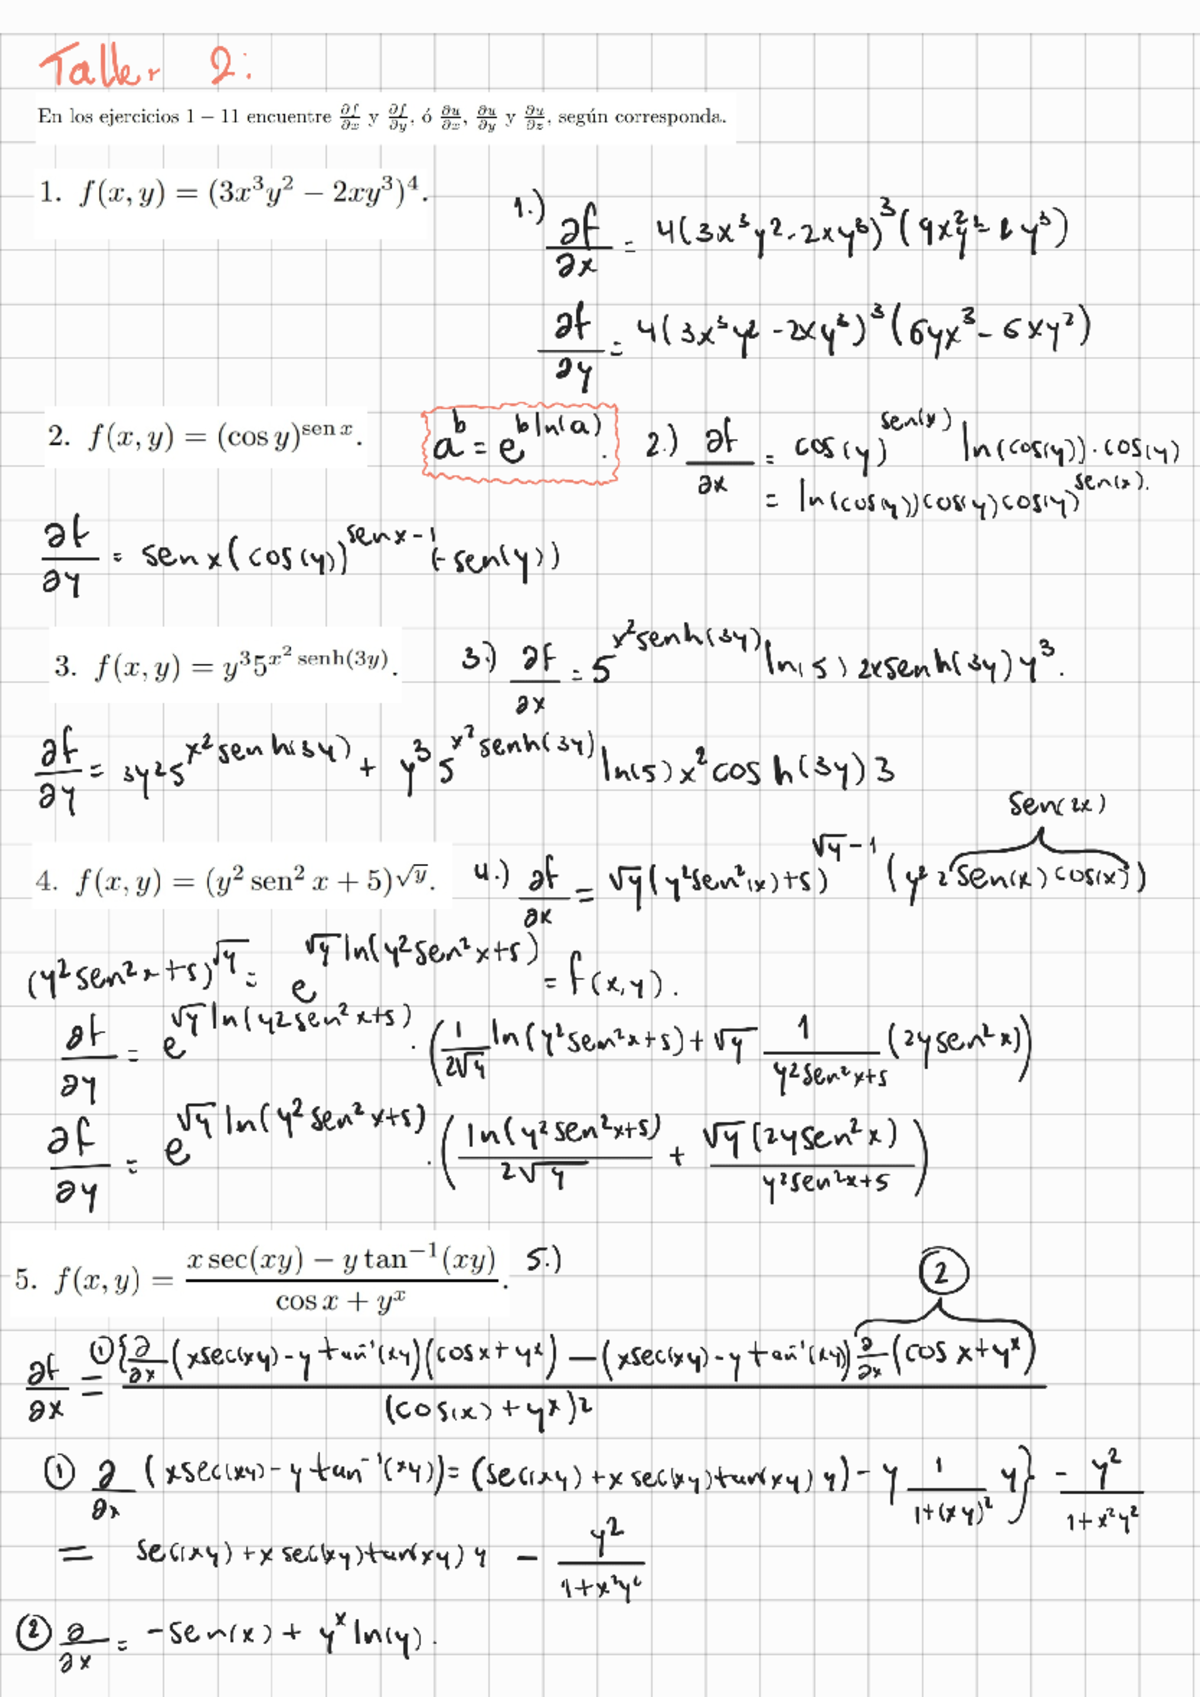 Taller 2:
En los ejercicios 1 – 11 encuentre ∂f/∂x y ∂f/∂y, ó ∂u/∂x, ∂u/∂y y ∂u/∂z, según corresponda.
1. f(x, y) = (3x³y² − 2xy³)⁴.
1.) ∂f/∂x = 4(3x³y² - 2xy³)³(9x²y² - 2y³)
∂f/∂y = 4(3x³y² - 2xy³)³(6yx³ - 6xy²)
2. f(x, y) = (cos y)^(sen x).
a^b = e^(b ln(a)).
2.) ∂f/∂x = cos(y)^(sen(x)) ln(cos(y)) · cos(y)
= ln(cos(y))cos(y)cos(y)^(sen(x)).
∂f/∂y = sen x(cos(y))^(sen x - 1) (-sen(y))
3. f(x, y) = y³5^(x² senh(3y)).
3.) ∂f/∂x = 5^(x² senh(3y)) ln(5) 2x senh(3y) y³.
∂f/∂y = 3y²5^(x² senh(3y)) + y³ 5^(x² senh(3y)) ln(5) x² cosh(3y) 3
sen(2x)
4. f(x, y) = (y² sen² x + 5)^(√y).
4.) ∂f/∂x = √y(y² sen²(x)+5)^(√y - 1) (y² 2 sen(x) cos(x))
(y² sen² x + 5)^(√y) = e^(√y ln(y² sen² x + 5)) = f(x,y).
∂f/∂y = e^(√y ln(y² sen² x + 5)) · (1/(2√y) ln(y² sen² x + 5) + √y 1/(y² sen² x + 5) (2y sen² x))
∂f/∂y = e^(√y ln(y² sen² x + 5)) · (ln(y² sen² x + 5)/(2√y) + √y(2y sen² x)/(y² sen² x + 5))
5. f(x, y) = (x sec(xy) − y tan⁻¹(xy))/(cos x + y^x).
5.)
②
∂f/∂x = ①{∂/∂x (x sec(xy) - y tan⁻¹(xy)(cos x + y^x) - (x sec(xy) - y tan⁻¹(xy)) ∂/∂x (cos x + y^x) / (cos(x) + y^x)²
① ∂/∂x (x sec(xy) - y tan⁻¹(xy)) = (sec(xy) + x sec(xy) tan(xy) y) - y 1/(1+(xy)²) y} - y²/(1+x²y²)
= sec(xy) + x sec(xy) tan(xy) y - y²/(1+x²y²)
② ∂/∂x = -sen(x) + y^x ln(y).